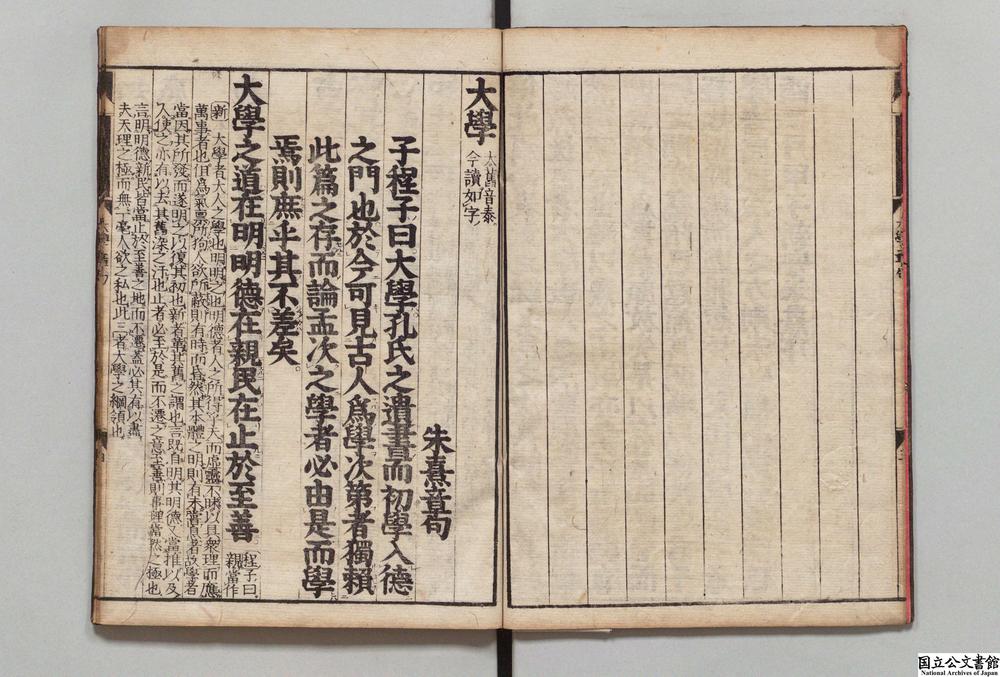 大學
大舊音泰
今讀如字
朱熹章句
子程子曰大學孔氏之遺書而初學入德
之門也於今可見古人爲學次第者獨賴
此篇之存而論孟次之學者必由是而學
焉則庶乎其不差矣
大學之道在明明德在親民在止於至善
程子曰
親當作
新 大學者大人之學也明明之也明德者人之所得乎天而虛靈不昧以具衆理而應
萬事者也但爲氣禀所拘人欲所蔽則有時而昏然其本體之明則有未嘗息者故學者
當因其所發而遂明之以復其初也新者革其舊之謂也言既自明其明德又當推以及
人使之亦有以去其舊染之汙也止者必至於是而不遷之意至善則事理當然之極也
言明明德新民皆當止於至善之地而不遷蓋必其有以盡
夫天理之極而無一毫人欲之私也此三者大學之綱領也
国立公文書館
National Archives of Japan